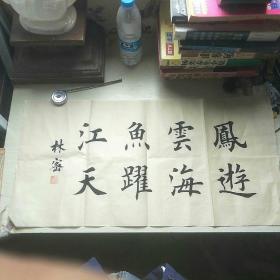 鳳遊
雲海
魚躍
江天
林容